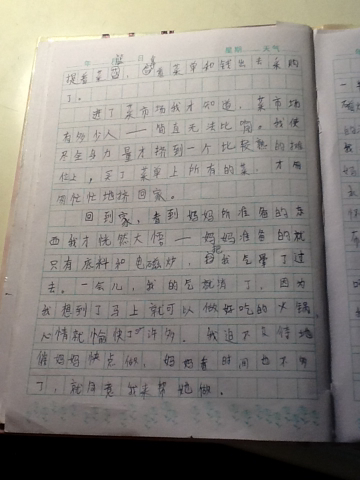 年 月 日 星期 天气
提着菜篮，拿着菜单和钱出去采购
了。
进了菜市场我才知道，菜市场
有多少人——简直无法比喻。我使
尽全身力量才挤到一个比较熟的摊
位上，买了菜单上所有的菜，才匆
匆忙忙地挤回家。
回到家，看到妈妈所准备的东
西我才恍然大悟——妈妈准备的就
只有底料和电磁炉，把我气晕了过
去。一会儿，我的气就消了，因为
我想到了马上就可以做好吃的火锅
心情就愉快了许多。我迫不及待地
催妈妈快点做，妈妈看时间也不多
了，就同意我来帮她做。